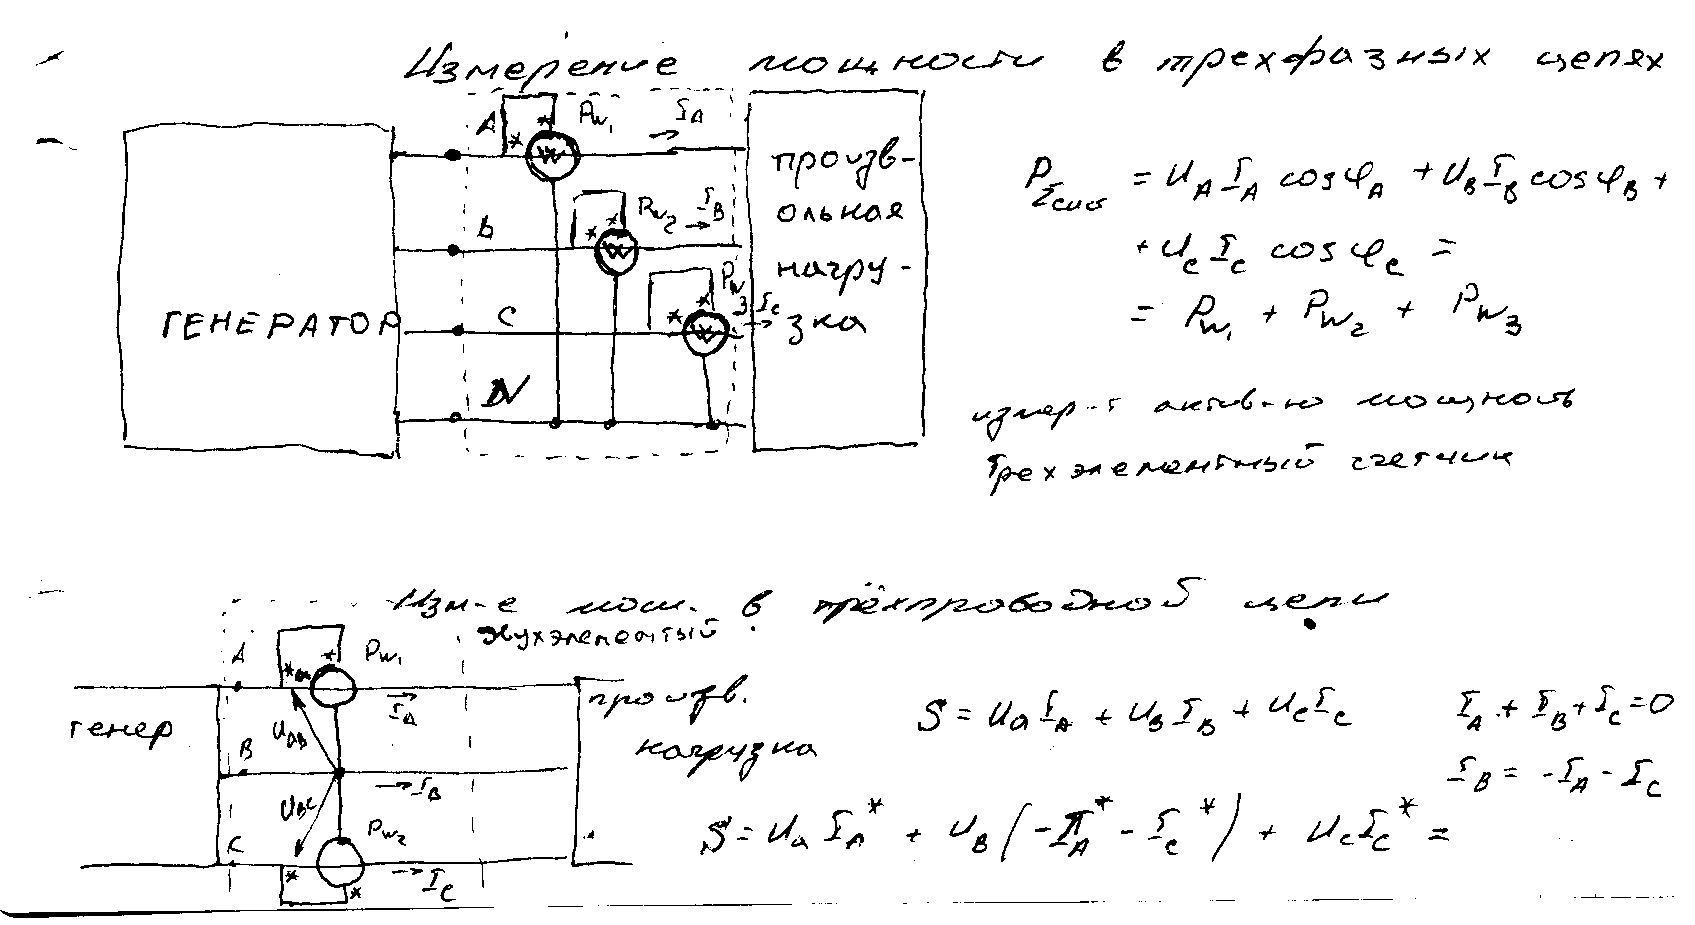 Измерение мощности в трехфазных цепях
A * * P_W1 I_A
B * * P_W2 I_B
C * * P_W3 I_C
N
ГЕНЕРАТОР
произв-
ольная
нагру-
зка
P_Σсис = U_A I_A cosφ_A + U_B I_B cosφ_B +
+ U_C I_C cosφ_C =
= P_W1 + P_W2 + P_W3
измер-т актив-ю мощность
Трехэлементный счетчик
Изм-е мощ. в трёхпроводной цепи
двухэлементый
A * * P_W1
I_A
генер
U_AB
B I_B
U_BC
P_W2
C * * I_C
произв.
нагрузка
S = U_a I_A + U_B I_B + U_C I_C I_A + I_B + I_C = 0
I_B = -I_A - I_C
S = U_a I_A* + U_B (-I_A* - I_C*) + U_C I_C* =